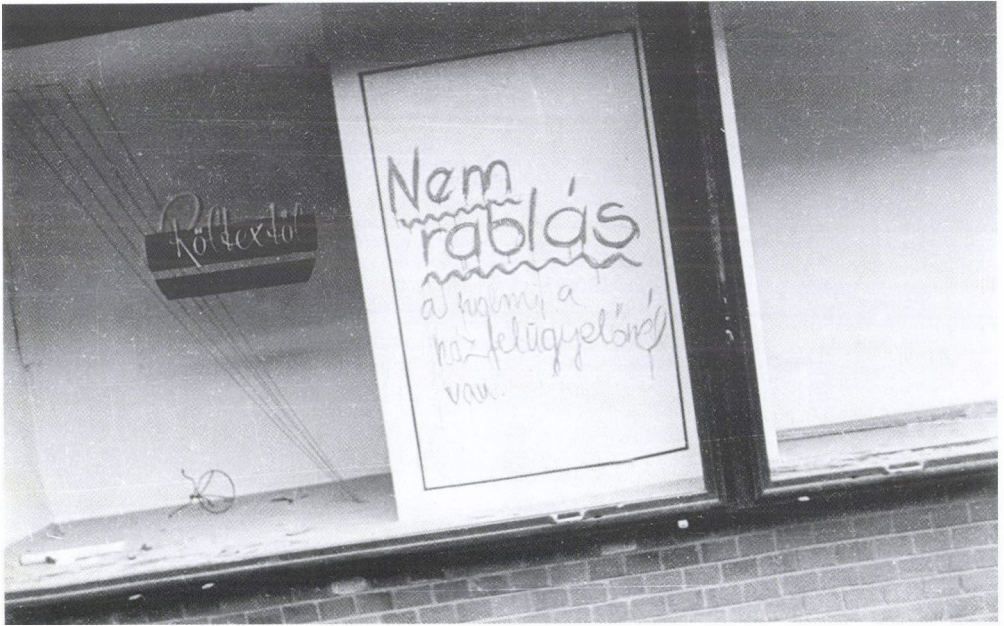 Röltextől
Nem
rablás
a holmi a
házfelügyelőnél
van.